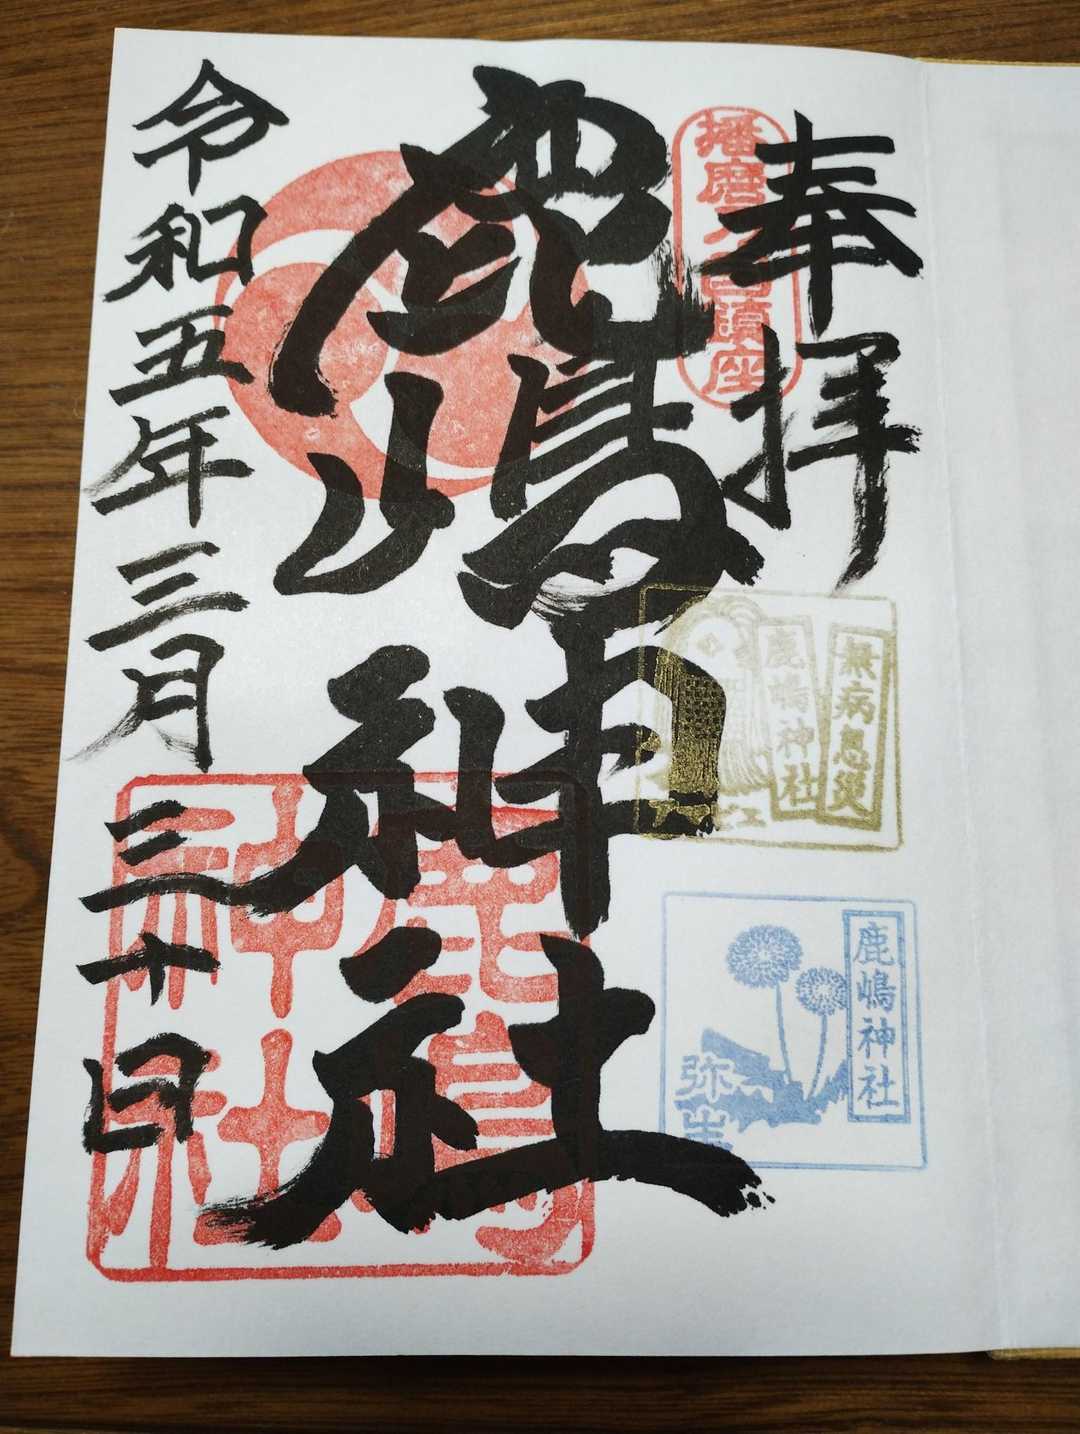 奉拝
播磨
国鎮座
鹿嶋神社
令和五年三月三十日
無病息災
鹿嶋神社
鹿嶋神社
弥生
神社